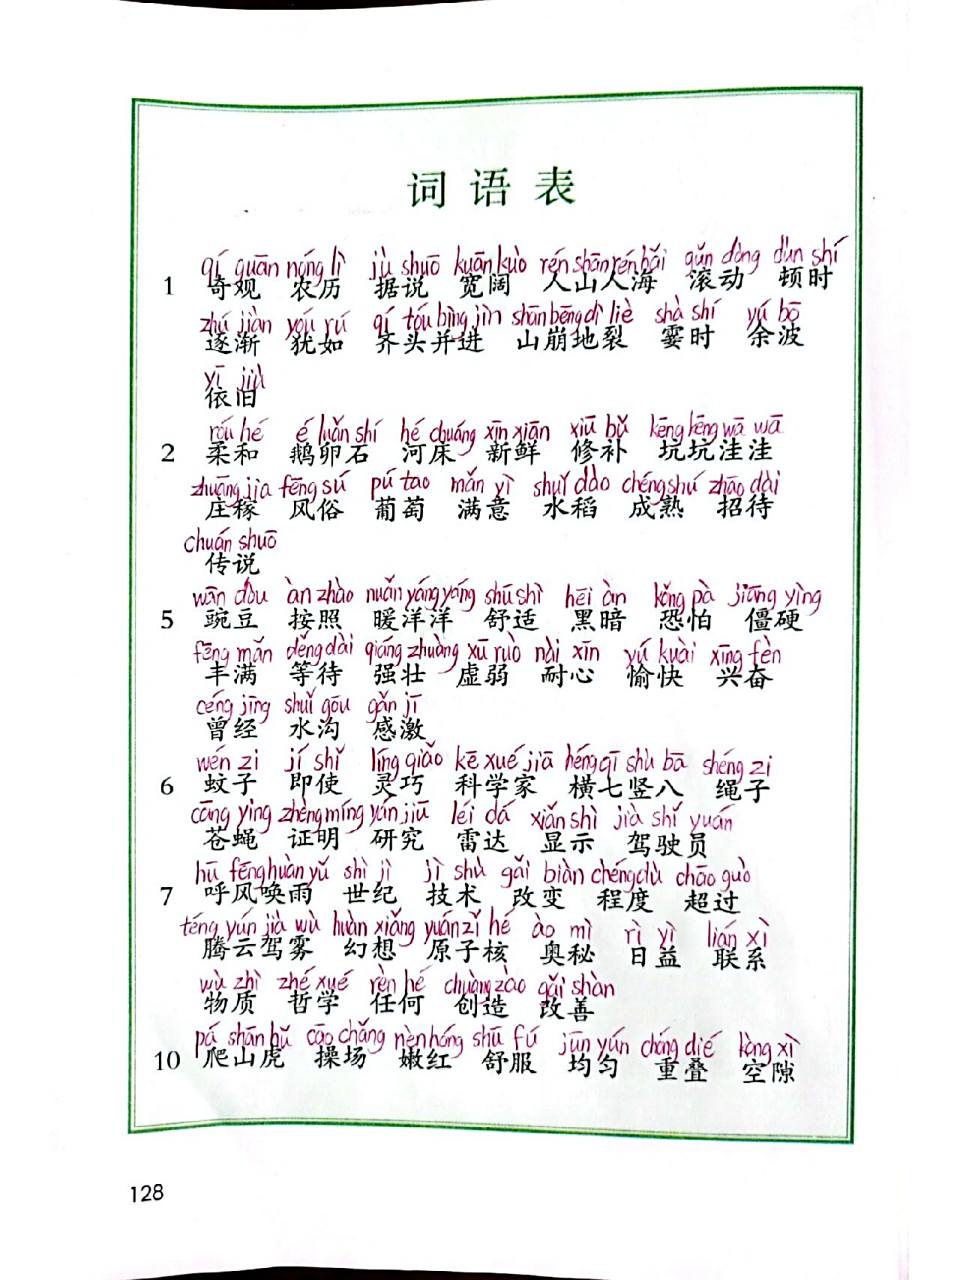 词语表
qí guān nóng lì jù shuō kuān kuò rén shān rén hǎi gǔn dòng dùn shí
1 奇观 农历 据说 宽阔 人山人海 滚动 顿时
zhú jiàn yóu rú qí tóu bìng jìn shān bēng dì liè shà shí yú bō
逐渐 犹如 齐头并进 山崩地裂 霎时 余波
yī jiù
依旧
róu hé é luǎn shí hé chuáng xīn xiān xiū bǔ kēng kēng wā wā
2 柔和 鹅卵石 河床 新鲜 修补 坑坑洼洼
zhuāng jia fēng sú pú tao mǎn yì shuǐ dào chéng shú zhāo dài
庄稼 风俗 葡萄 满意 水稻 成熟 招待
chuán shuō
传说
wān dòu àn zhào nuǎn yáng yáng shū shì hēi àn kǒng pà jiāng yìng
5 豌豆 按照 暖洋洋 舒适 黑暗 恐怕 僵硬
fēng mǎn děng dài qiáng zhuàng xū ruò nài xīn yú kuài xīng fèn
丰满 等待 强壮 虚弱 耐心 愉快 兴奋
céng jīng shuǐ gōu gǎn jī
曾经 水沟 感激
wén zi jí shǐ líng qiǎo kē xué jiā héng qī shù bā shéng zi
6 蚊子 即使 灵巧 科学家 横七竖八 绳子
cāng ying zhèng míng yán jiū léi dá xiǎn shì jià shǐ yuán
苍蝇 证明 研究 雷达 显示 驾驶员
hū fēng huàn yǔ shì jì jì shù gǎi biàn chéng dù chāo guò
7 呼风唤雨 世纪 技术 改变 程度 超过
téng yún jià wù huàn xiǎng yuán zǐ hé ào mì rì yì lián xì
腾云驾雾 幻想 原子核 奥秘 日益 联系
wù zhì zhé xué rèn hé chuàng zào gǎi shàn
物质 哲学 任何 创造 改善
pá shān hǔ cāo chǎng nèn hóng shū fú jūn yún chóng dié kòng xì
10 爬山虎 操场 嫩红 舒服 均匀 重叠 空隙
128